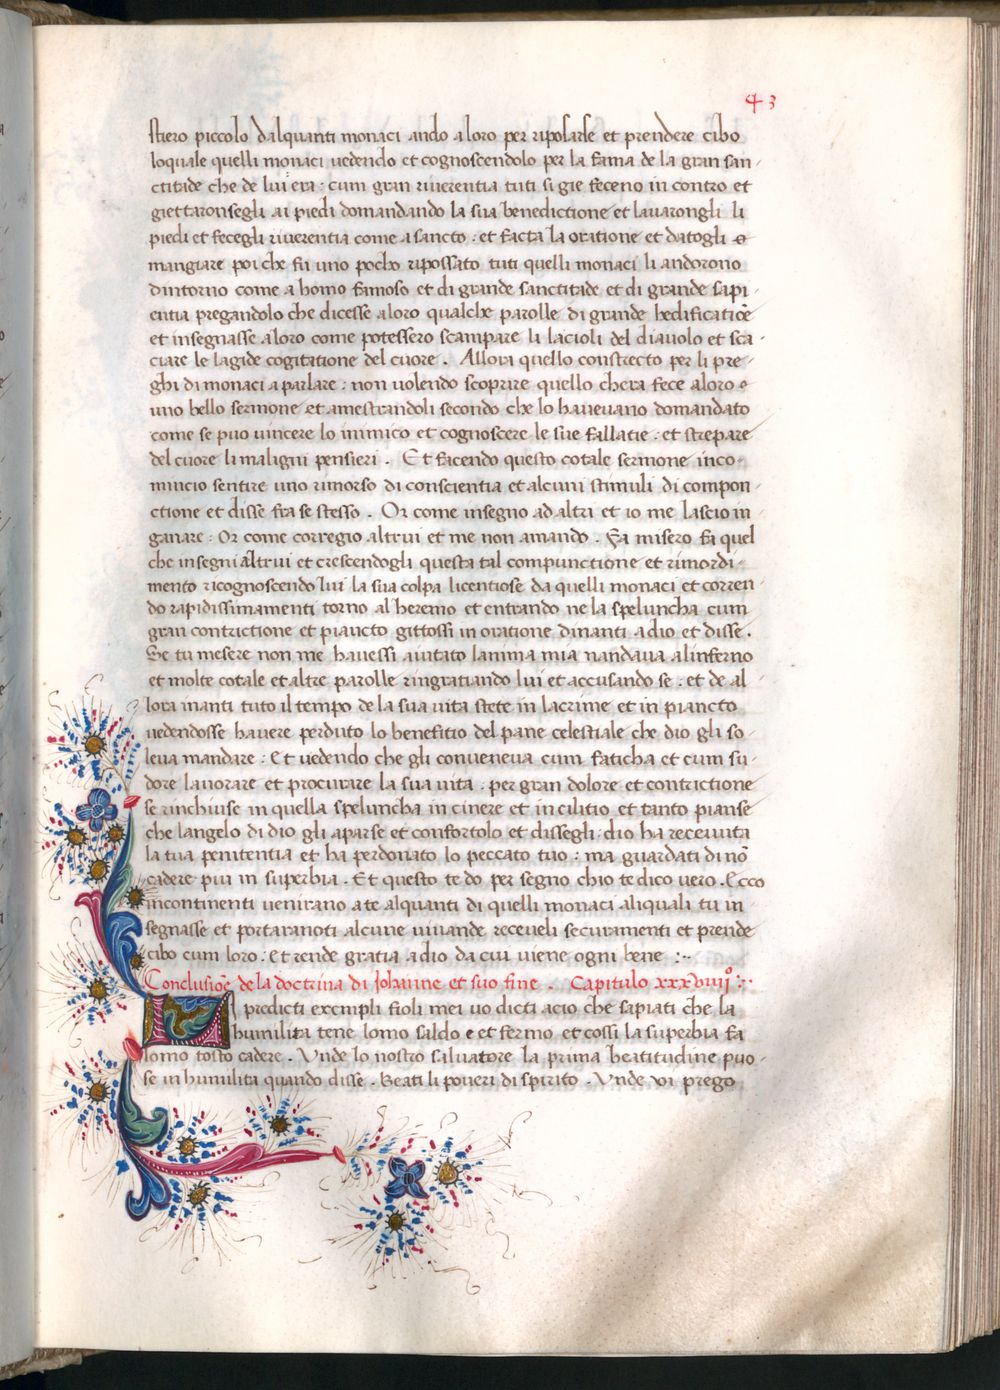 43
stiero piccolo dalquanti monaci ando aloro per riposarse et prendere cibo
loquale quelli monaci uedendo et cognoscendolo per la fama de la gran san-
ctitade che de lui era : cum gran riuerentia tuti si gie feceno in contro et
giettaronsegli ai piedi domandando la sua benedictione et lauarongli li
piedi et fecegli riuerentia come a sancto : et facta la oratione et datogli a
mangiare poi che fu uno pocho ripossato tuti quelli monaci li andorono
dintorno come a homo famoso et di grande sanctitade et di grande sapi-
entia pregandolo che dicesse aloro qualche parolle di grande hedificatiōe
et insegnasse aloro come potessero scampare li lacioli del diauolo et sca-
ciare le lagide cogitatione del cuore . Allora quello constrecto per li pre-
ghi di monaci a parlare : non uolendo scoprire quello chera fece aloro
uno bello sermone et amestrandoli secondo che lo haueuano domandato
come se puo uincere lo inimico et cognoscere le sue fallatie : et strepare
del cuore li maligni pensieri . Et facendo questo cotale sermone inco-
mincio sentire uno rimorso di conscientia et alcuni stimuli di compon-
ctione et disse fra se stesso . Or come insegno ad altri et io me lascio in-
ganare : Or come corregio altrui et me non amando . Fa misero fa quel
che insegni altrui et crescendogli questa tal compunctione et rimordi-
mento ricognoscendo lui la sua colpa licentiose da quelli monaci et corren-
do rapidissimamenti torno al heremo et entrando ne la speluncha cum
gran contrictione et piancto gittossi in oratione dinanti a dio et disse .
Se tu mesere non me hauessi aiutato lanima mia nandaua alinferno
et molte cotale et altre parolle ringratiando lui et accusando se : et de al-
lora inanti tuto il tempo de la sua uita stete in lacrime et in piancto
uedendosse hauere perduto lo benefitio del pane celestiale che dio gli so-
leua mandare : Et uedendo che gli conueneua cum faticha et cum su-
dore lauorare et procurare la sua uita . per gran dolore et contrictione
se rinchiuse in quella speluncha in cinere et in cilitio et tanto pianse
che langelo di dio gli aparse et confortolo et dissegli : dio ha receiuuta
la tua penitentia et ha perdonato lo peccato tuo : ma guardati di nō
cadere piu in superbia . Et questo te do per segno chio te dico uero . Ecco
incontinenti uenirano a te alquanti di quelli monaci aliquali tu in-
segnasse et portaranoti alcune uiuande receueli securamenti et prende
cibo cum loro : Et rende gratia a dio da cui uiene ogni bene :~
Conclusiōe de la doctrina di Iohanne et suo fine . Capitulo xxxviiij° :~
I predicti exempli fioli mei uo dicti acio che sapiati che la
humilita tene lomo saldo e et fermo et cossi la superbia fa
lomo tosto cadere . Unde lo nostro saluatore la prima beatitudine puo-
se in humilita quando disse . Beati li poueri di spirito . Unde vi prego